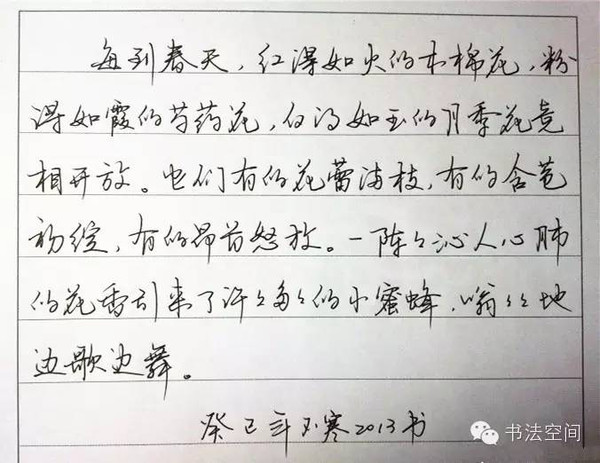 每到春天,红得如火的木棉花,粉
得如霞的芍药花,白得如玉的月季花竞
相开放。它们有的花蕾满枝,有的含苞
初绽,有的昂首怒放。一阵々沁人心肺
的花香引来了许々多々的小蜜蜂,嗡々々地
边歌边舞。
癸巳年 寒2013书
书法空间